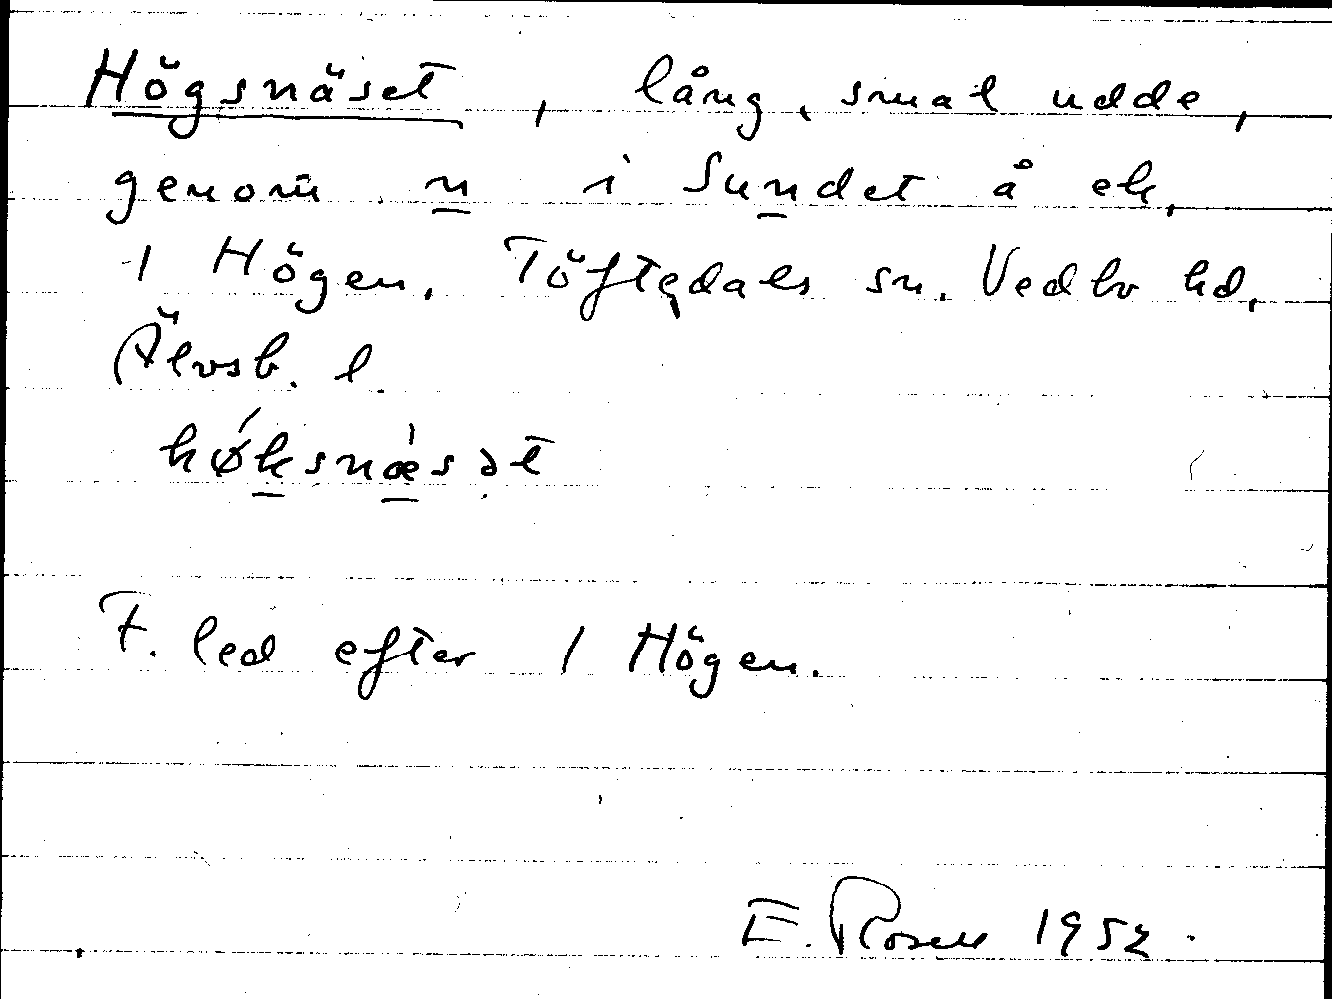 Högsnäset, lång, smal udde,
genom n i Sundet å ek.
1 Högen, Töftedals sn. Vedbo hd,
Älvsb. l.
hǿksnæ̀sət
F. led efter 1 Högen.
E. Rosell 1952.